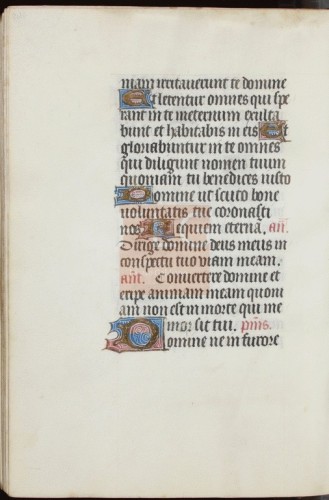 mam irritaverunt te domine
Et letentur omnes qui spe
rant in te in eternum exulta
bunt et habitabis in eis Et
gloriabuntur in te omnes
qui diligunt nomen tuum
quoniam tu benedices iusto
Domine ut scuto bone
voluntatis tue coronasti
nos Requiem eterna. an.
Dirige domine deus meus in
conspectu tuo viam meam.
ant. Convertere domine et
eripe animam meam quoni
am non est in morte qui me
mor sit tui. psms.
Domine ne in furore